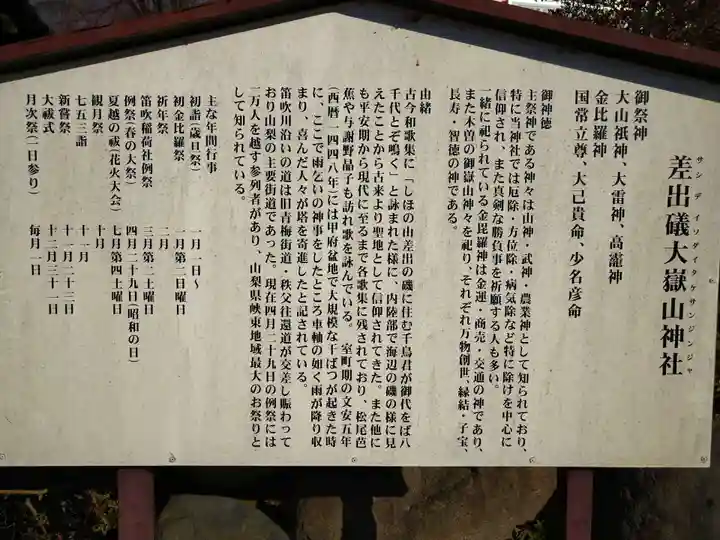 差出磯大嶽山神社
サシデイソダイタケサンジンジャ
御祭神
大山祇神、大雷神、高龗神
金比羅神
国常立尊、大己貴命、少名彦命
御神徳
主祭神である神々は山神・武神・農業神として知られており、
特に当神社では厄除・方位除・病気除など特に除けを中心に
信仰され、また真剣な勝負事を祈願する人も多い。
一緒に祀られている金毘羅神は金運・商売・交通の神であり、
また木曽の御嶽山神々を祀り、それぞれ万物創世、縁結・子宝、
長寿・智徳の神である。
由緒
古今和歌集に「しほの山差出の磯に住む千鳥君が御代をば八
千代とぞ鳴く」と詠まれた様に、内陸部で海辺の磯の様に見
えたことから古来より聖地として信仰されてきた。また他に
も平安期から現代に至るまで各歌集に残されており、松尾芭
蕉や与謝野晶子も訪れ歌を詠んでいる。室町期の文安五年
(西暦一四四八年)には甲府盆地で大規模な干ばつが起きた時
に、ここで雨乞いの神事をしたところ車軸の如く雨が降り収
まり、喜んだ人々が塔を寄進したと記されている。
笛吹川沿いの道は旧青梅街道・秩父往還道が交差し賑わって
おり山梨の主要街道であった。現在四月二十九日の例祭には
二万人を越す参列者があり、山梨県峡東地域最大のお祭りと
して知られている。
主な年間行事
初詣(歳旦祭) 一月一日～
初金比羅祭 一月第二日曜日
祈年祭 二月
笛吹稲荷社例祭 三月第二土曜日
例祭(春の大祭) 四月二十九日(昭和の日)
夏越の祓(花火大会) 七月第四土曜日
観月祭 十月
七五三詣 十一月
新嘗祭 十一月二十三日
大祓式 十二月三十一日
月次祭(一日参り) 毎月一日